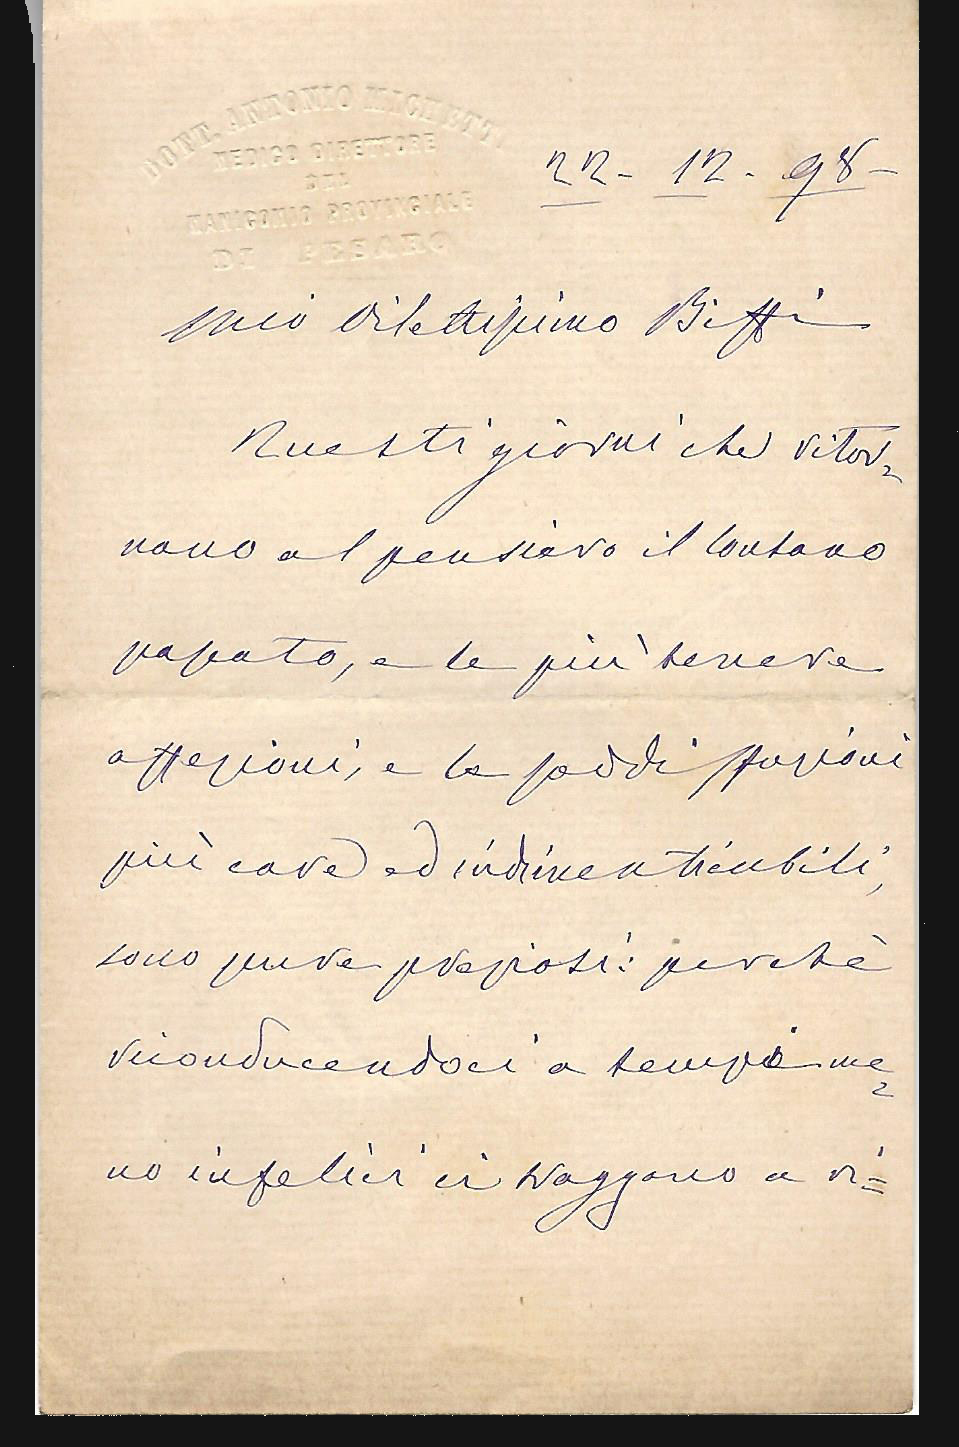 DOTT. ANTONIO MICHETTI
MEDICO DIRETTORE
DEL
MANICOMIO PROVINCIALE
DI PESARO
22 - 12 - 98 -
Mio Dilettissimo Biffi
Questi giorni che ritor-
nano al pensiero il lontano
passato, e le più tenere
affezioni, e le soddisffazioni
più care ed indimenticabili,
sono pure preziosi: perchè
riconducendoci a tempi me-
no infelici ci traggono a ri=